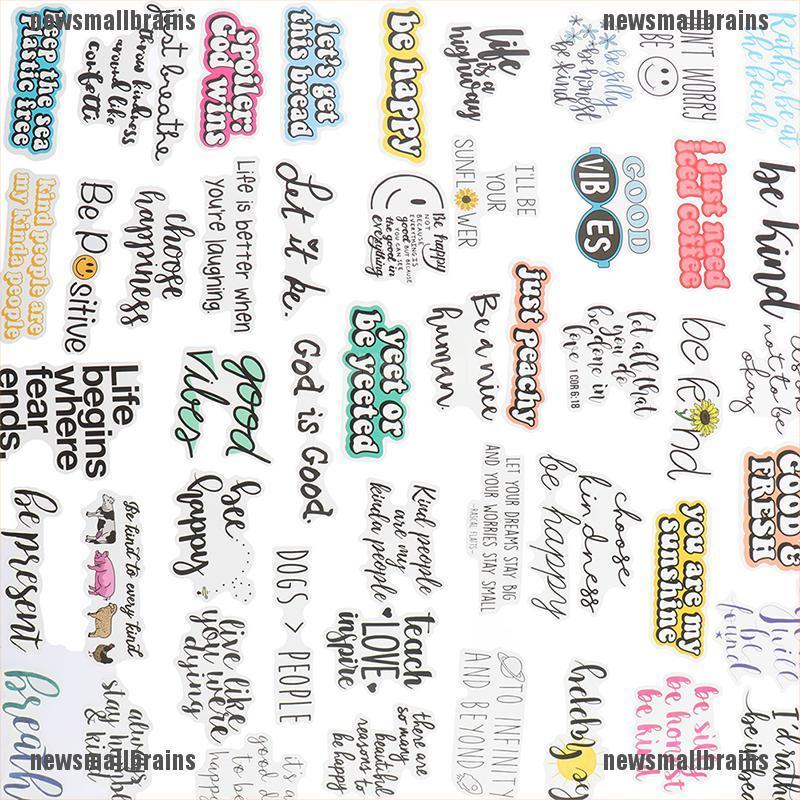 newsmallbrains
newsmallbrains
keep the sea
plastic free
throw kindness
around like
confetti
just breathe
spoiler:
God wins
let's get
this bread
be happy
life
is a
highway
be silly
be honest
be kind
DON'T WORRY
BE
Rather be at
the beach
kind people are
my kinda people
Be positive
choose
happiness
Life is better when
you're laughing.
Let it be.
Be happy
NOT
BECAUSE
EVERYTHING IS
good BUT BECAUSE
YOU CAN SEE
the good in
everything
I'LL BE
YOUR
SUNFLOWER
GOOD
VIBES
i just need
iced coffee
be kind
Life
begins
where
fear
ends.
good
vibes
God is Good.
yeet or
be yeeted
Be a nice
human.
just peachy
let all that
you do
be done in
love 1 COR 16:18
be kind
not to be
okay
be present
Be kind to every kind
bee
happy
DOGS > PEOPLE
Kind people
are my
kinda people
LET YOUR DREAMS STAY BIG
AND YOUR WORRIES STAY SMALL
-RASCAL FLATTS-
choose
kindness
be happy
you are my
sunshine
GOOD &
FRESH
breathe
always
stay humble
& kind
live like
you were
dying
it's a
good d
to be
happy
teach
LOVE
inspire
there are
so many
beautiful
reasons to
be happy
TO INFINITY
AND BEYOND
happy
be silly
be honest
be kind
be
found
I'd rather
be in bed
newsmallbrains
newsmallbrains